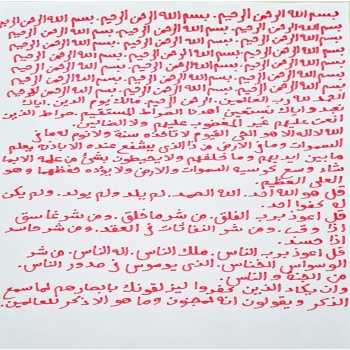 بسم الله الرحمن الرحيم. بسم الله الرحمن الرحيم. بسم الله الرحمن الرحيم
بسم الله الرحمن الرحيم. بسم الله الرحمن الرحيم. بسم الله الرحمن الرحيم
بسم الله الرحمن الرحيم. بسم الله الرحمن الرحيم. بسم الله الرحمن الرحيم
بسم الله الرحمن الرحيم. بسم الله الرحمن الرحيم. بسم الله الرحمن الرحيم
بسم الله الرحمن الرحيم. بسم الله الرحمن الرحيم. بسم الله الرحمن الرحيم
بسم الله الرحمن الرحيم. بسم الله الرحمن الرحيم. بسم الله الرحمن الرحيم
بسم الله الرحمن الرحيم. بسم الله الرحمن الرحيم. بسم الله الرحمن الرحيم
الحمد لله رب العالمين. الرحمن الرحيم. مالك يوم الدين. اياك
نعبد واياك نستعين اهدنا الصراط المستقيم. صراط الذين
انعمت عليهم غير المغضوب عليهم ولا الضالين.
الله لا اله الا هو الحي القيوم لا تأخذه سنة ولا نوم له ما في
السموات وما في الارض من ذا الذي يشفع عنده الا باذنه يعلم
ما بين ايديهم وما خلفهم ولا يحيطون بشئ من علمه الا بما
شاء وسع كرسيه السموات والارض ولا يؤده حفظهما وهو
العلي العظيم.
قل هو الله احد. الله الصمد. لم يلد ولم يولد. ولم يكن
له كفوا احد.
قل اعوذ برب الفلق. من شر ما خلق. ومن شر غاسق
اذا وقب. ومن شر النفاثات في العقد. ومن شر حاسد
اذا حسد.
قل اعوذ برب الناس. ملك الناس. اله الناس. من شر
الوسواس الخناس. الذي يوسوس في صدور الناس.
من الجنة والناس.
وان يكاد الذين كفروا ليزلقونك بابصارهم لما سمع
الذكر ويقولون انه لمجنون وما هو الا ذكر للعالمين.